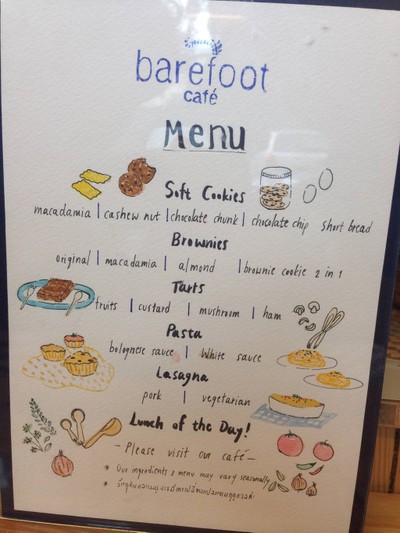 barefoot
café
Menu
Soft Cookies
macadamia | cashew nut | chocolate chunk | chocolate chip short bread
Brownies
original | macadamia | almond | brownie cookie 2 in 1
Tarts
fruits | custard | mushroom | ham
Pasta
bolognese sauce | White sauce
Lasagna
pork | vegetarian
Lunch of the Day!
- Please visit our café -
* Our ingredients & menu may vary seasonally
*